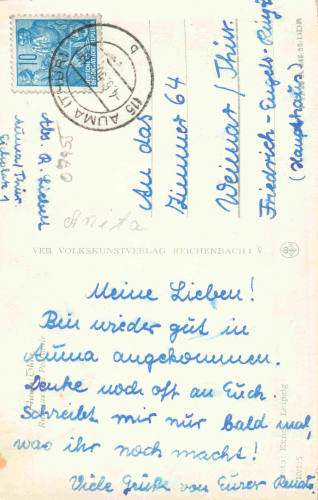 10
(15) AUMA (THÜR)
b
An das
Zimmer 64
Weimar / Thür.
Friedrich-Engels-Ring
(Haupthaus)
Abs. R.
Auma/Thür.
07955
Anita
VEB VOLKSKUNSTVERLAG REICHENBACH I. V.
Meine Lieben!
Bin wieder gut in
Auma angekommen.
Denke noch oft an Euch.
Schreibt mir nur bald mal,
was ihr noch macht!
Viele Grüße von Eurer Renate.
Auma (Thür.)
Leipzig